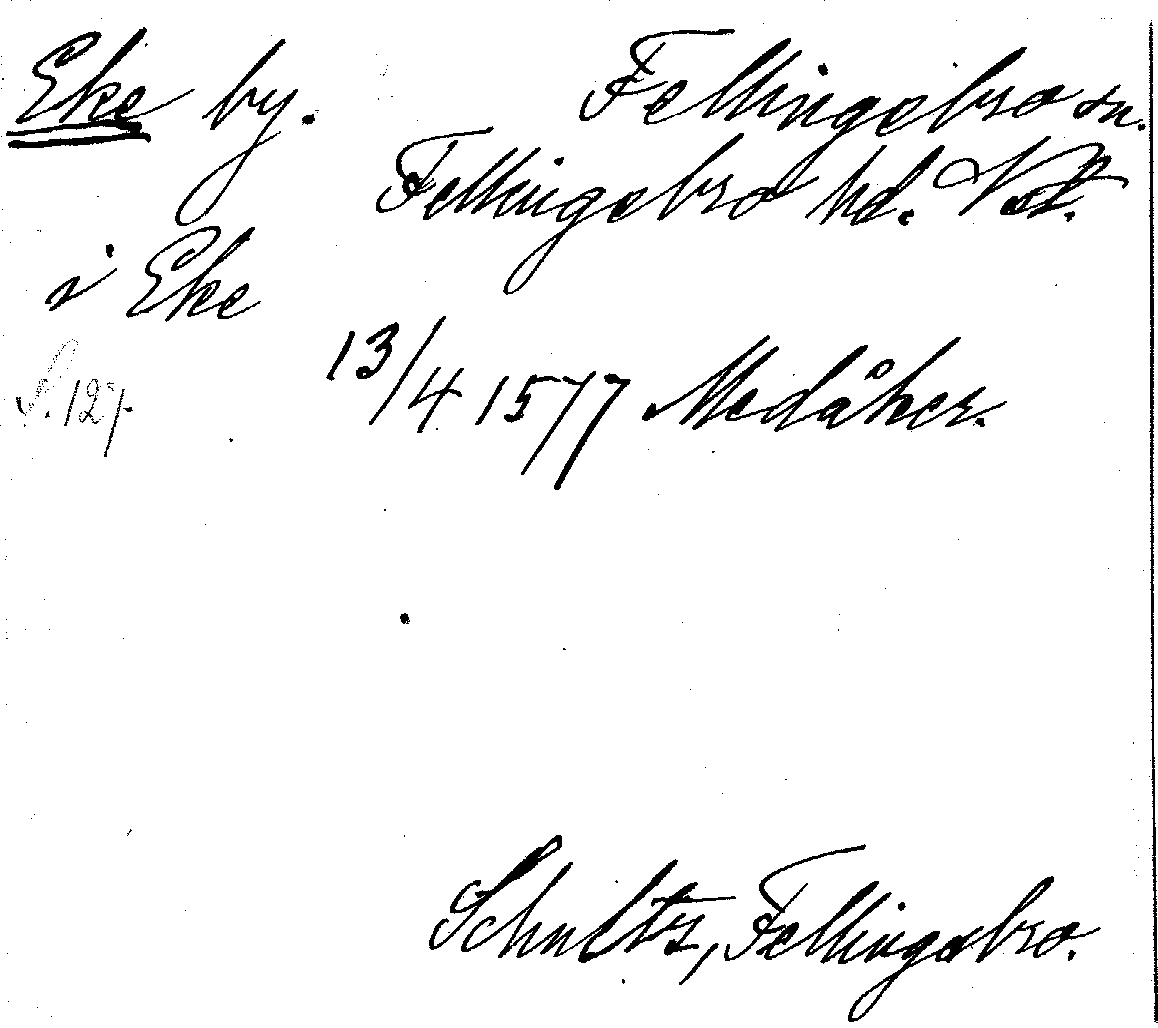 Eke by. Fellingsbro sn.
Fellingsbro hd. Vstl.
i Eke
13/4 1577 Medåker.
S. 127.
Schultz, Fellingsbro.